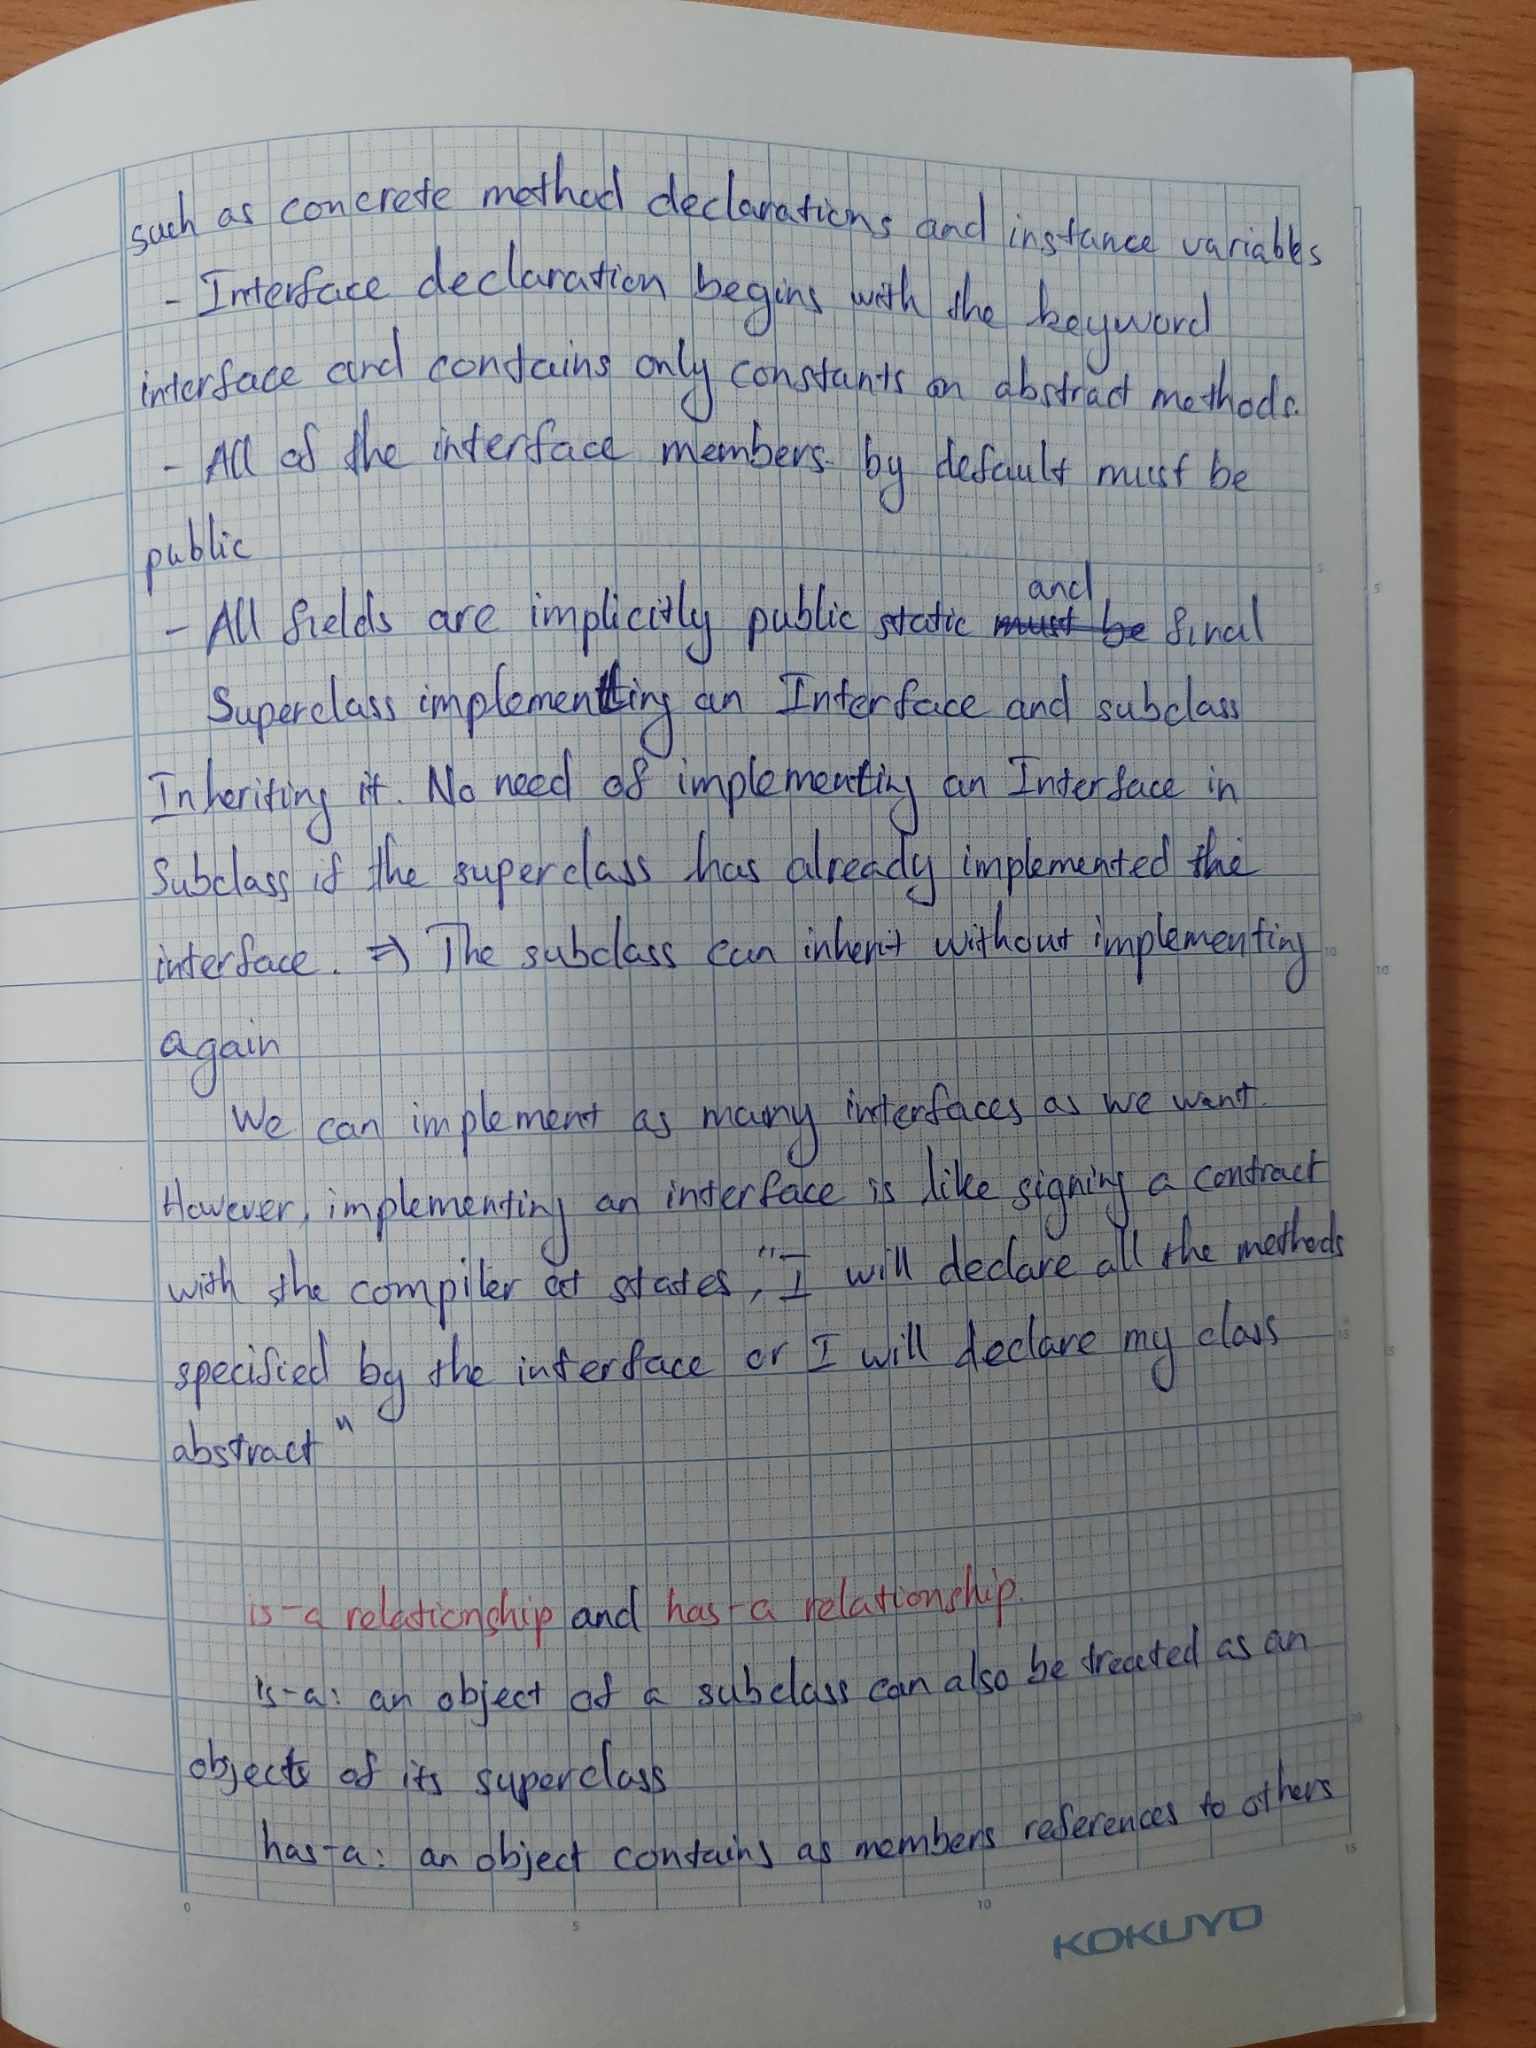 such as concrete method declarations and instance variables
- Interface declaration begins with the keyword
interface and contains only constants on abstract methods.
- All of the interface members by default must be
public
and
- All fields are implicitly public static must be final
Superclass implementing an Interface and subclass
Inheriting it. No need of implementing an Interface in
Subclass if the superclass has already implemented the
interface. => The subclass can inherit without implementing
again
We can implement as many interfaces as we want.
However, implementing an interface is like signing a contract
with the compiler at states, "I will declare all the methods
specified by the interface or I will declare my class
abstract"
is-a relationship and has-a relationship.
is-a: an object of a subclass can also be treated as an
objects of its superclass
has-a: an object contains as members references to others
0 5 10 15
KOKUYO